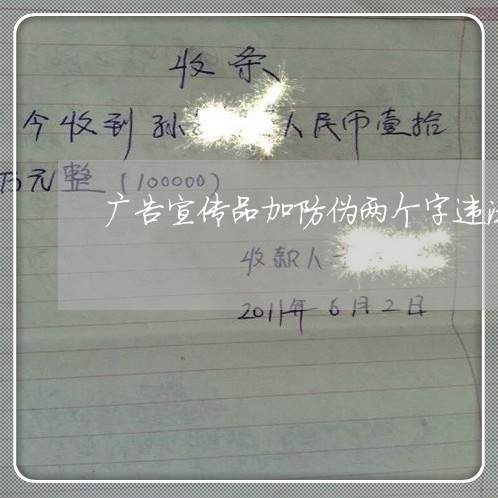 收条
今收到孙 人民币壹拾
万元整(100000)
广告宣传品加防伪两个字违法
收款人
2011年6月2日